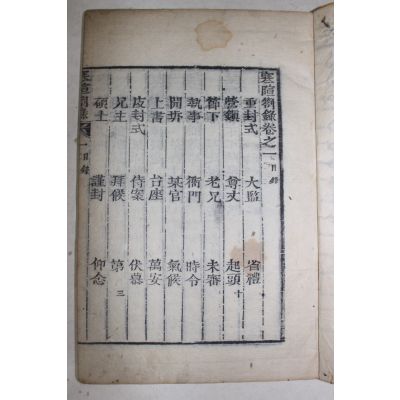 寒暄劄錄卷之一 目錄
重封式 大監 省禮
營鎭 尊丈 起頭 十
節下 老兄 未審
執事 衙門 時令
開拆 某官 氣候
上書 台座 萬安
皮封式 侍案 伏慕
兄主 拜候 第 三
碩士 謹封 仰念
寒暄劄錄 卷一 目錄